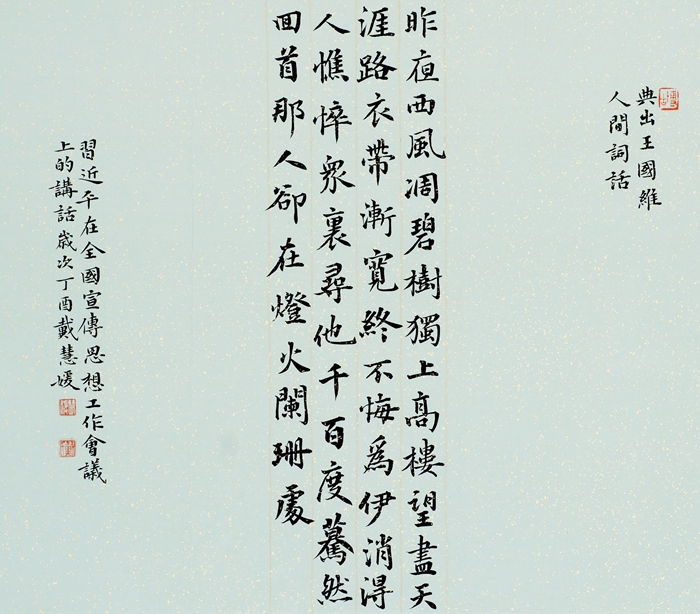 典出王國維
人間詞話
昨夜西風凋碧樹獨上高樓望盡天
涯路衣帶漸寬終不悔爲伊消得
人憔悴衆裏尋他千百度驀然
回首那人卻在燈火闌珊處
習近平在全國宣傳思想工作會議
上的講話歲次丁酉戴慧媛